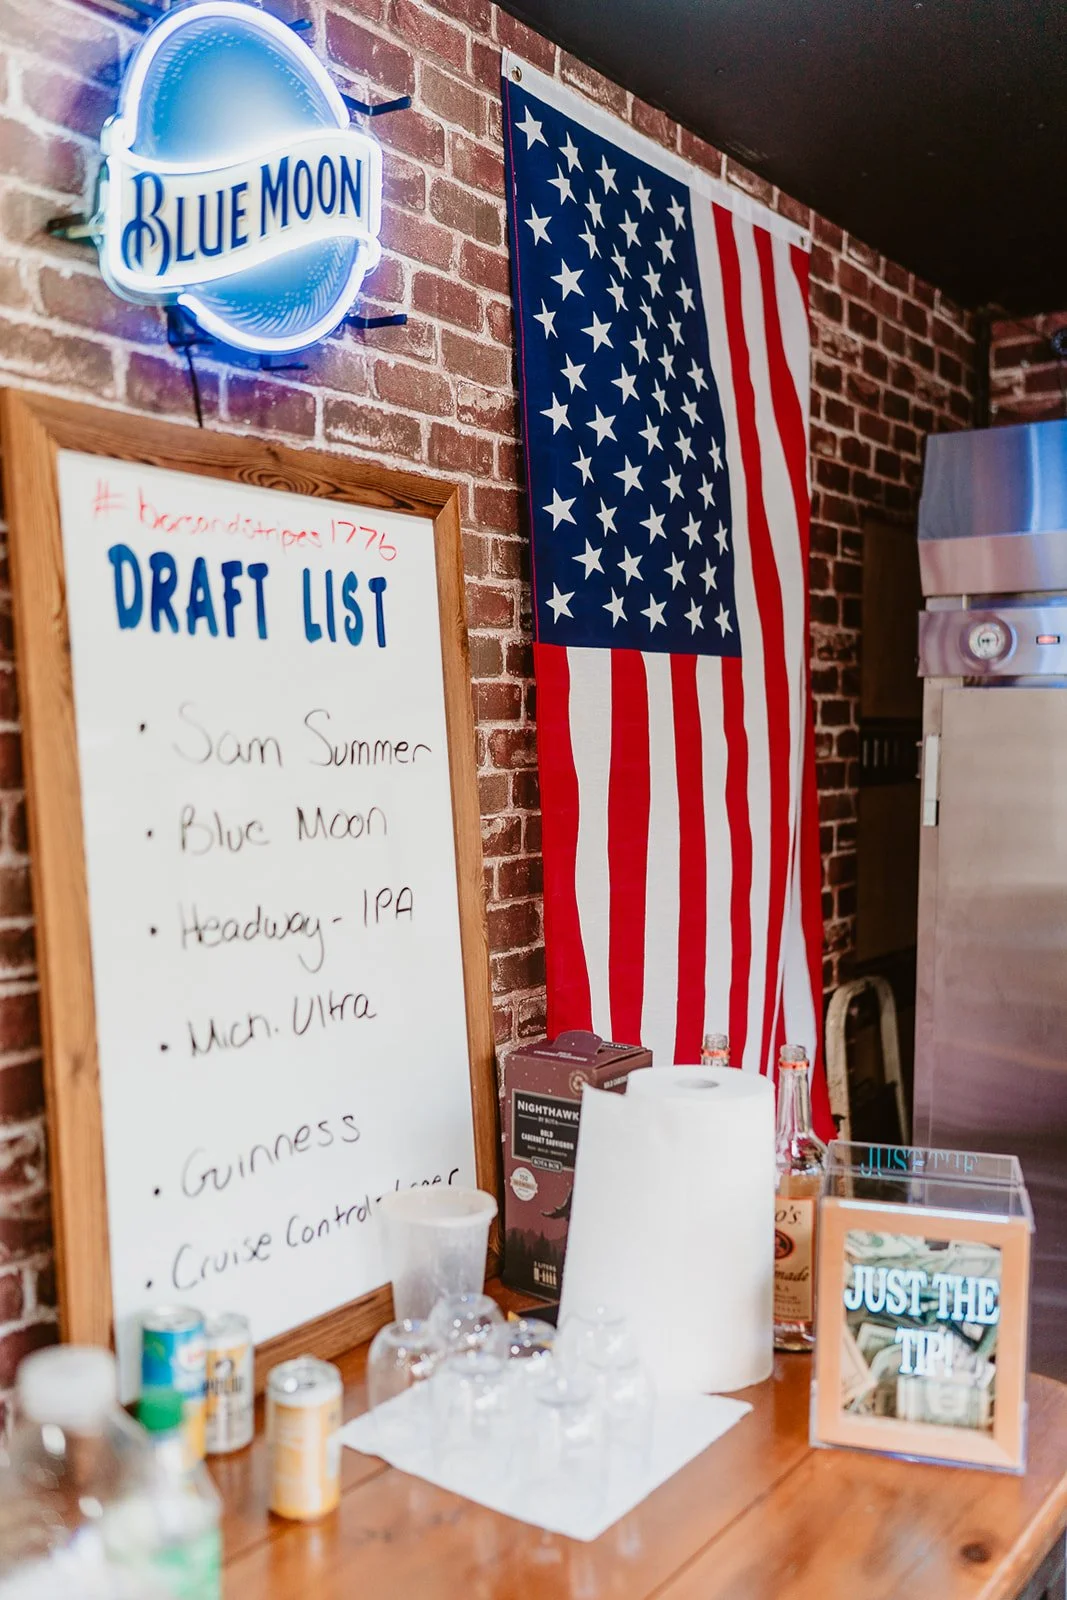 BLUE MOON
# barsandstripes1776
DRAFT LIST
• Sam Summer
• Blue Moon
• Headway - IPA
• Mich. Ultra
• Guinness
• Cruise Control -
NIGHTHAWK
BOLD
CABERNET SAUVIGNON
BOTA BOX
3 LITERS
JUST THE
JUST THE
TIP!